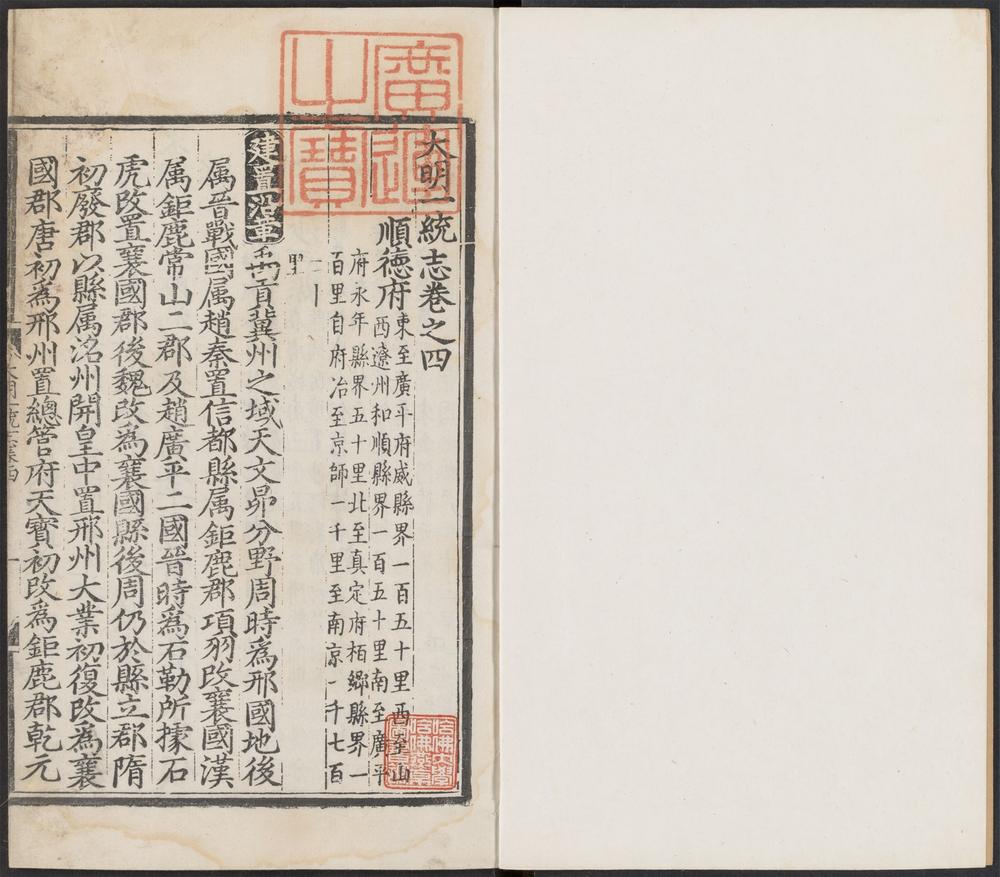 大明一統志卷之四
順德府東至廣平府威縣界一百五十里西至山
西遼州和順縣界一百五十里南至廣平
府永年縣界五十里北至真定府栢鄉縣界一
百里自府治至京師一千里至南京一千七百
里
建置沿革禹貢冀州之域天文昴分野周時爲邢國地後
属晉戰國属趙秦置信都縣属鉅鹿郡項羽改襄國漢
属鉅鹿常山二郡及趙廣平二國晉時爲石勒所據石
虎改置襄國郡後魏改爲襄國縣後周仍於縣立郡隋
初廢郡以縣属洺州開皇中置邢州大業初復改爲襄
國郡唐初爲邢州置總管府天寳初改爲鉅鹿郡乾元
廣運
之寶